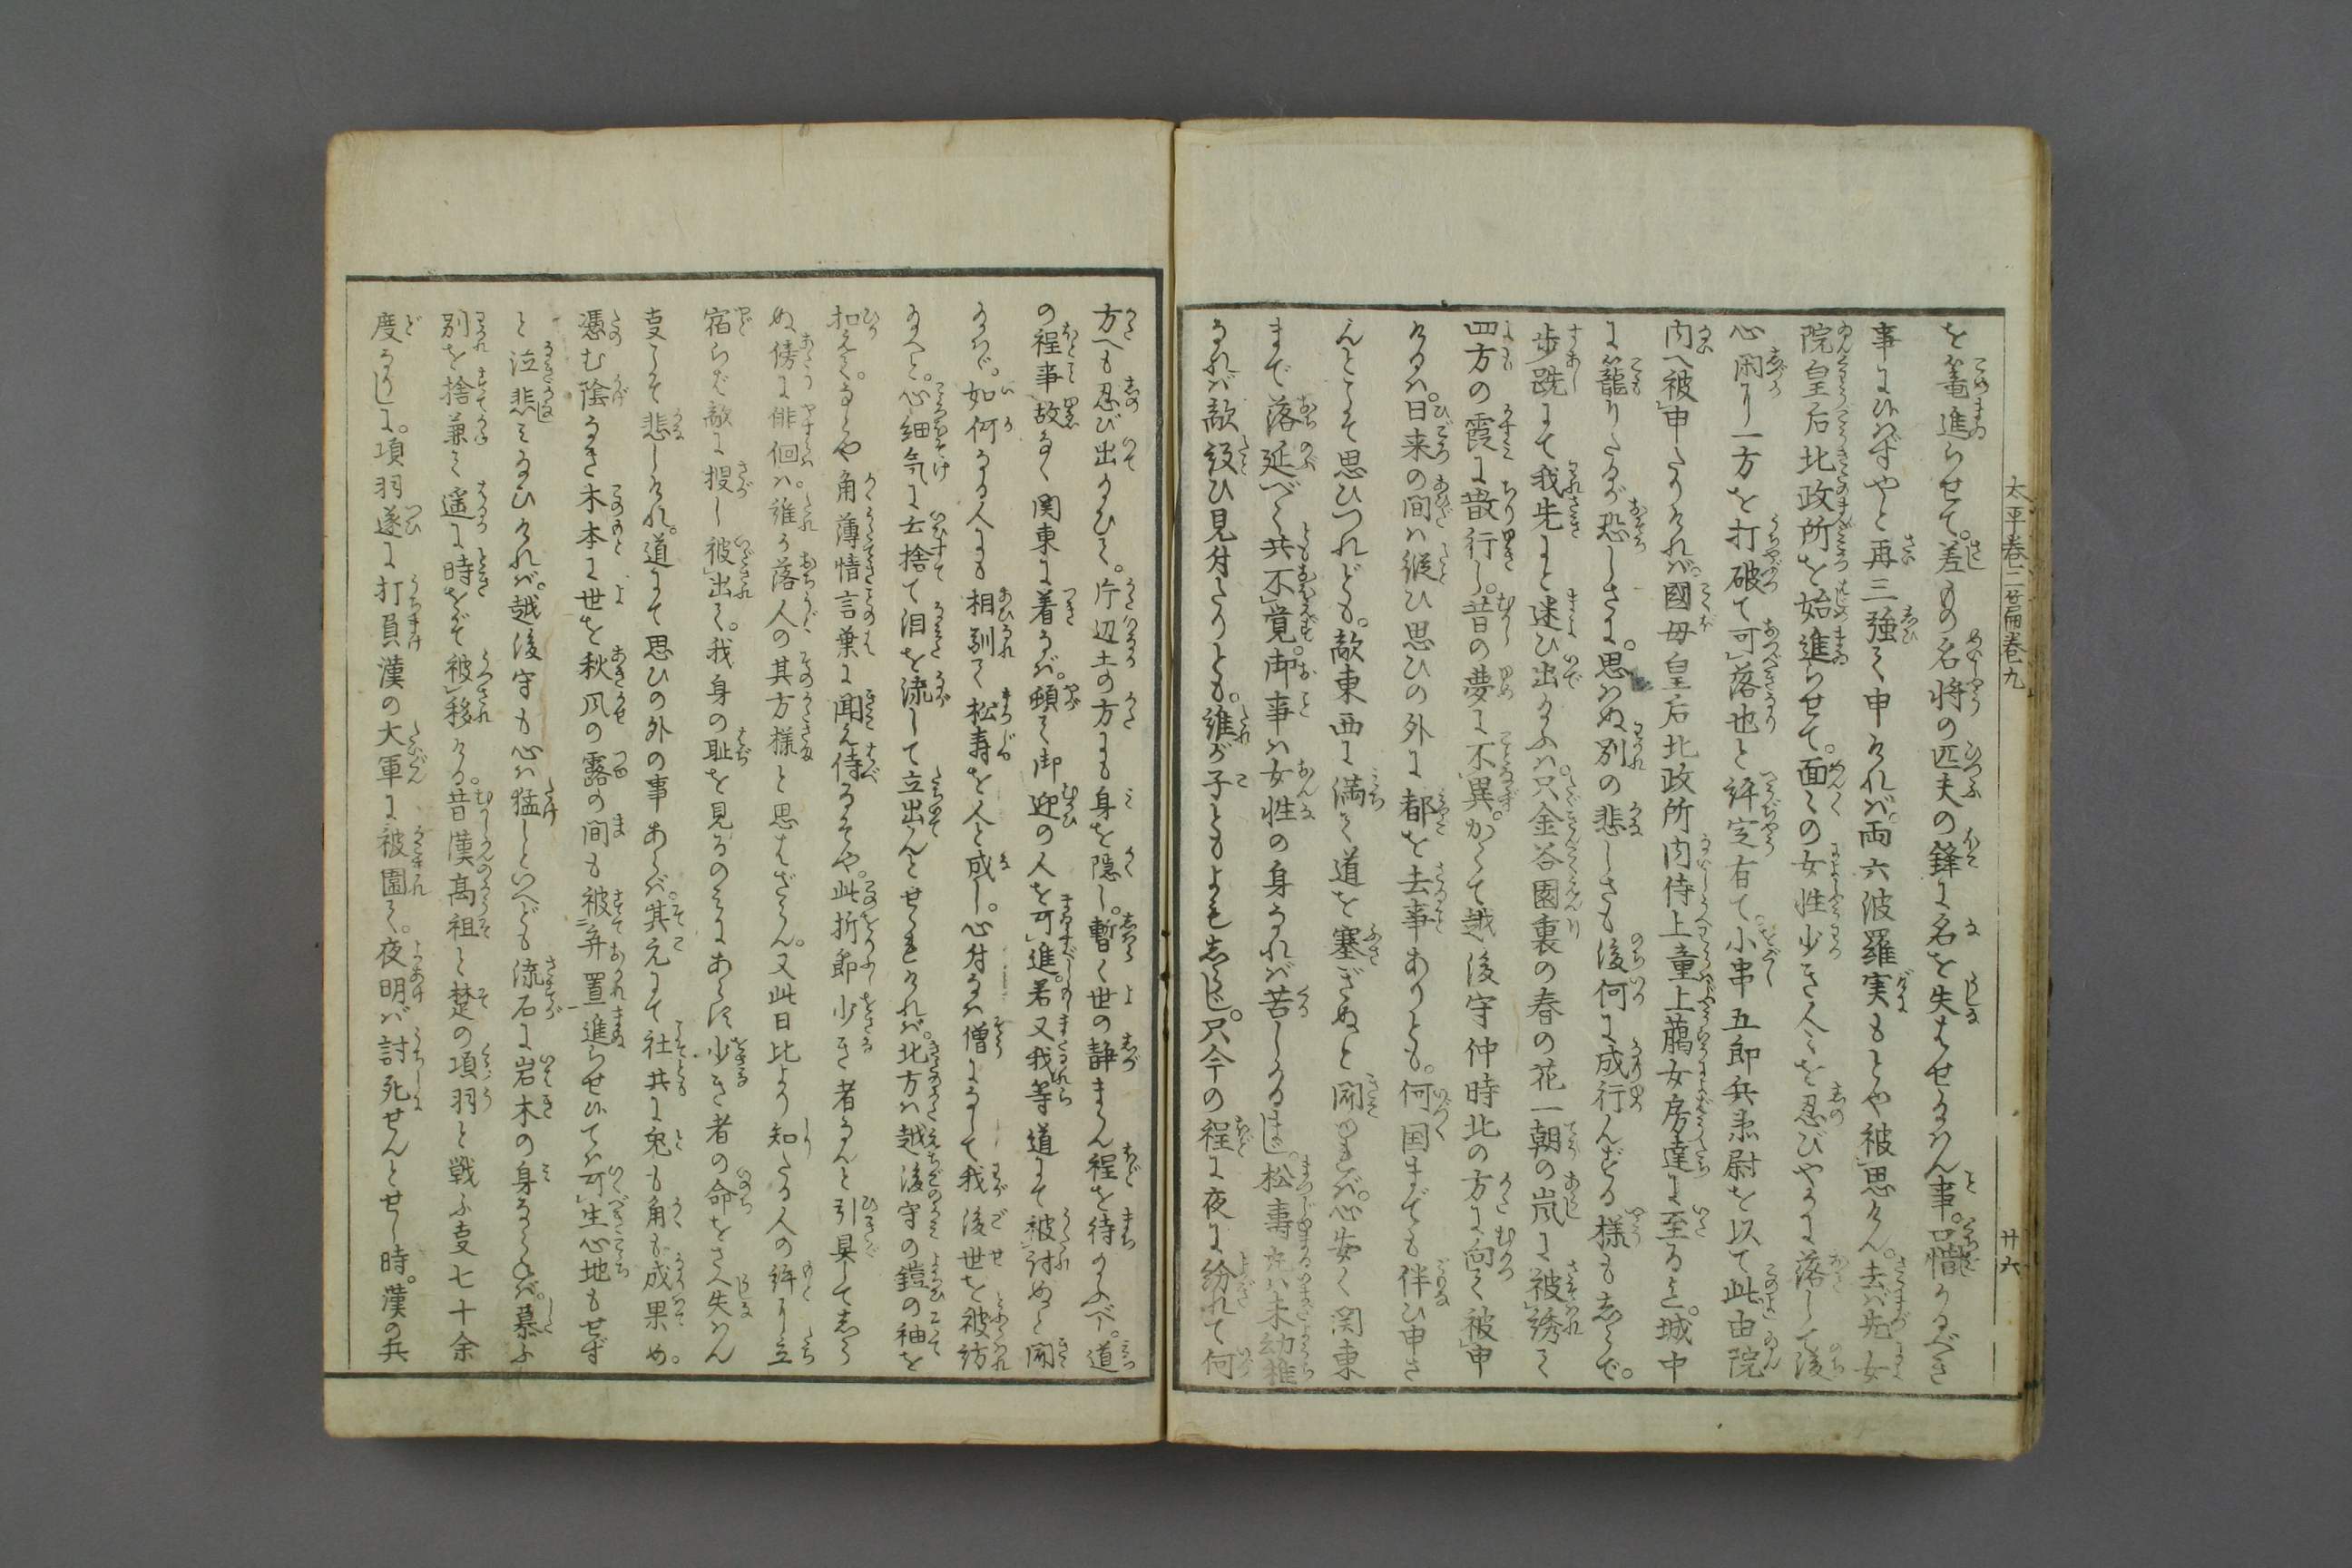 太平卷二廿扁卷九
廿六
を篭進らせて。差もの名将の匹夫の鋒に名を失はせ給はん事。口惜かるべき
事に候はずやと再三強て申ければ。両六波羅実もとや被思けん。去ば先女
院皇后北政所を始進らせて。面々の女性少き人々を忍びやかに落して後
心閑に一方を打破て可落也と評定有て。小串五郎兵衛尉を以て此由院
内へ被申たりければ。國母皇后北政所内侍上童上﨟女房達に至るまで。城中
に籠りたるが恐しさに。思はぬ別の悲しさも後何に成行んずる様も志らで。
歩跣にて我先にと迷ひ出給ふ。只金谷園裏の春の花一朝の嵐に被誘て
四方の霞に散行し。昔の夢に不異。かくて越後守仲時北の方に向て被申
けるは。日来の間は縦ひ思ひの外に都を去事ありとも。何国までも伴ひ申さ
んとこそ思ひつれども。敵東西に満て道を塞ぎぬと聞ゆれば。心安く関東
まで落延べく共不覚。御事は女性の身なれば苦しかるまじ。松寿は未幼稚
なれば敵設ひ見付たりとも。誰が子ともよも志らじ。只今の程に夜に紛れて何
方へも忍び出給ひて。片辺土の方にも身を隠し。暫く世の静まらん程を待給ふべし。道
の程事故なく関東に着なば。頓て御迎の人を可進。若又我等道にて被討ぬと聞
給はゞ。如何なる人にも相馴て松寿を人と成し。心付なば僧になして我後世を被訪
よと。心細気に云捨て泪を流して立出んとせられければ。北方は越後守の鎧の袖を
扣えて。などや角薄情言葉に聞え侍るぞや。此折節少き者なんど引具して志ら
ぬ傍に俳徊は。誰か落人の其方様と思はざらん。又此日比より知たる人の許に立
宿らば敵に捜し被出て。我身の恥を見るのみにあらず少き者の命をさへ失はん
亊こそ悲しけれ。道にて思ひの外の事あらば。其にて社共に兎も角も成果め。
憑む陰なき木本に世を秋風の露の間も被弃置進らせ候ては可生心地もせず
と泣悲み給ひければ。越後守も心は猛しといへども流石に岩木の身ならねば。慕ふ
別を捨兼て遥に時をぞ被移ける。昔漢高祖と楚の項羽と戦ふ亊七十余
度なりしに。項羽遂に打負漢の大軍に被園て。夜明ば討死せんとせし時。漢の兵